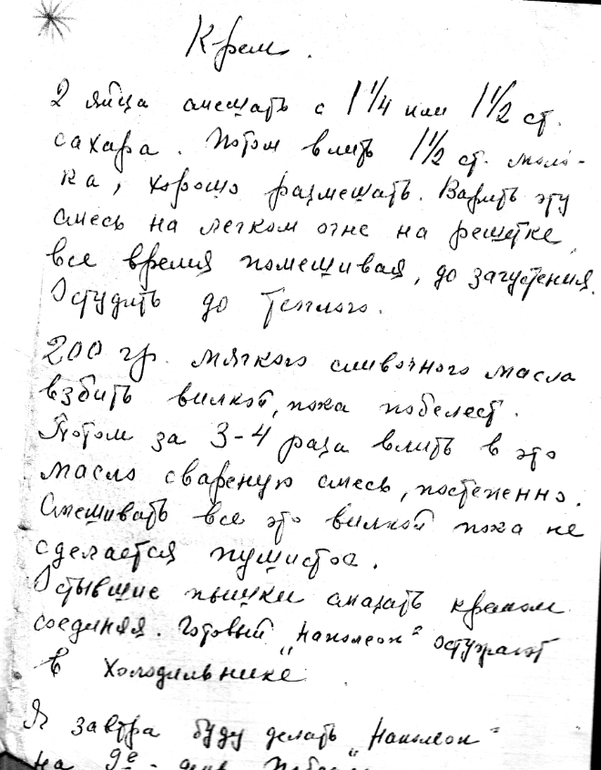 Крем.
2 яйца смешать с 1 1/4 или 1 1/2 ст.
сахара. Потом влить 1 1/2 ст. моло-
ка, хорошо размешать. Варить эту
смесь на легком огне на решетке,
все время помешивая, до загустения.
Остудить до теплого.
200 гр. мягкого сливочного масла
взбить вилкой, пока побелеет.
Потом за 3-4 раза влить в это
масло свареную смесь, постепенно.
Смешивать все это вилкой пока не
сделается пушистое.
Остывшие пышки смазать кремом
соединяя. Готовый "Наполеон" остужают
в холодильнике.
Я завтра буду делать "Наполеон"
на 9е - день